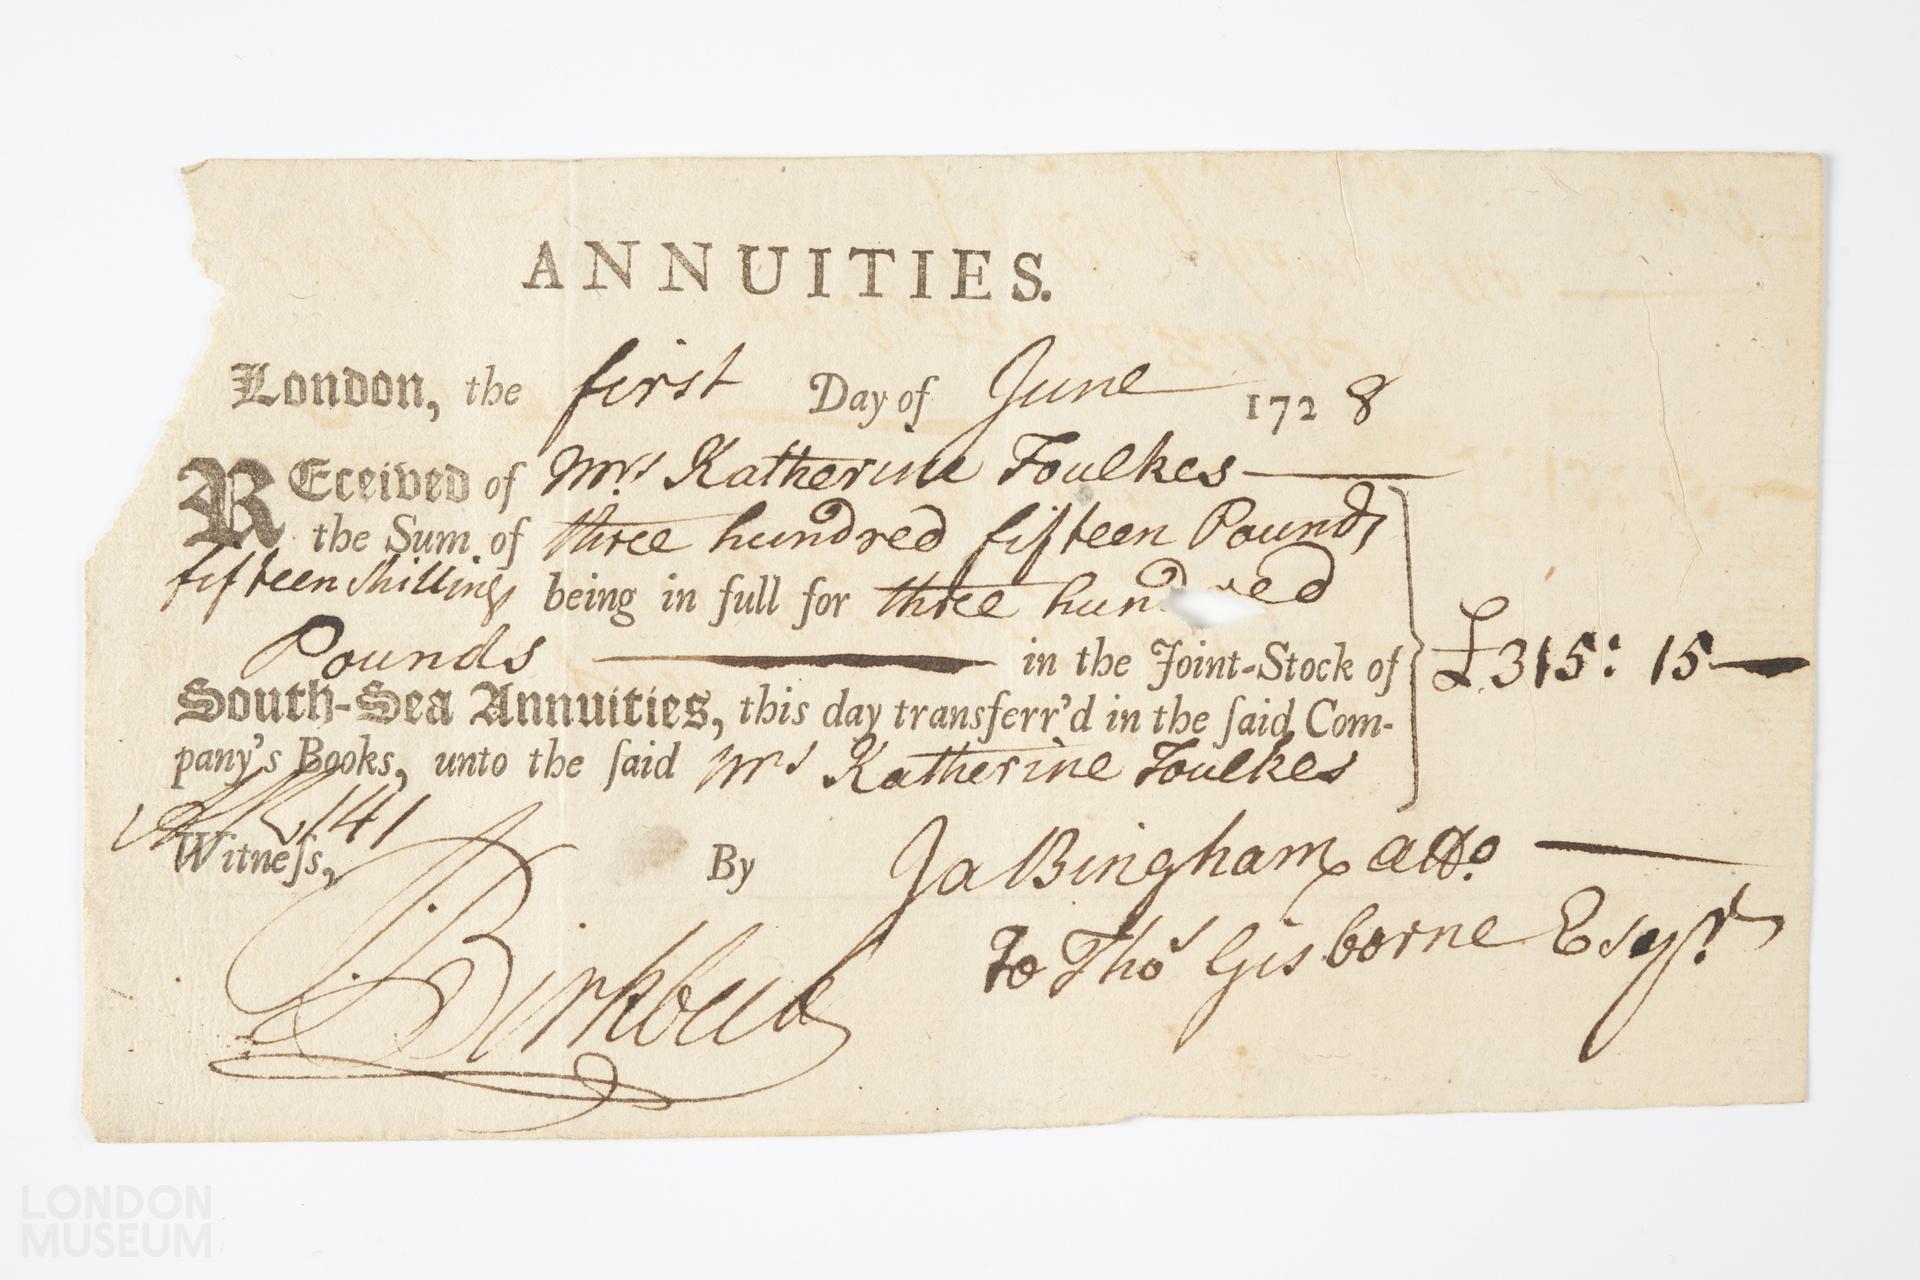 ANNUITIES.
London, the first Day of June 1728
REceived of Mrs Katherine Foulkes
the Sum of three hundred fifteen Pounds
fifteen shillings being in full for three hundred
Pounds in the Joint-Stock of
£315: 15
South-Sea Annuities, this day transferr'd in the ſaid Com-
pany's Books, unto the ſaid Mrs Katherine Foulkes
141
Witneſs, By Ja Bingham atto.
Birkbeck to Thos Gisborne Esqr.
LONDON
MUSEUM